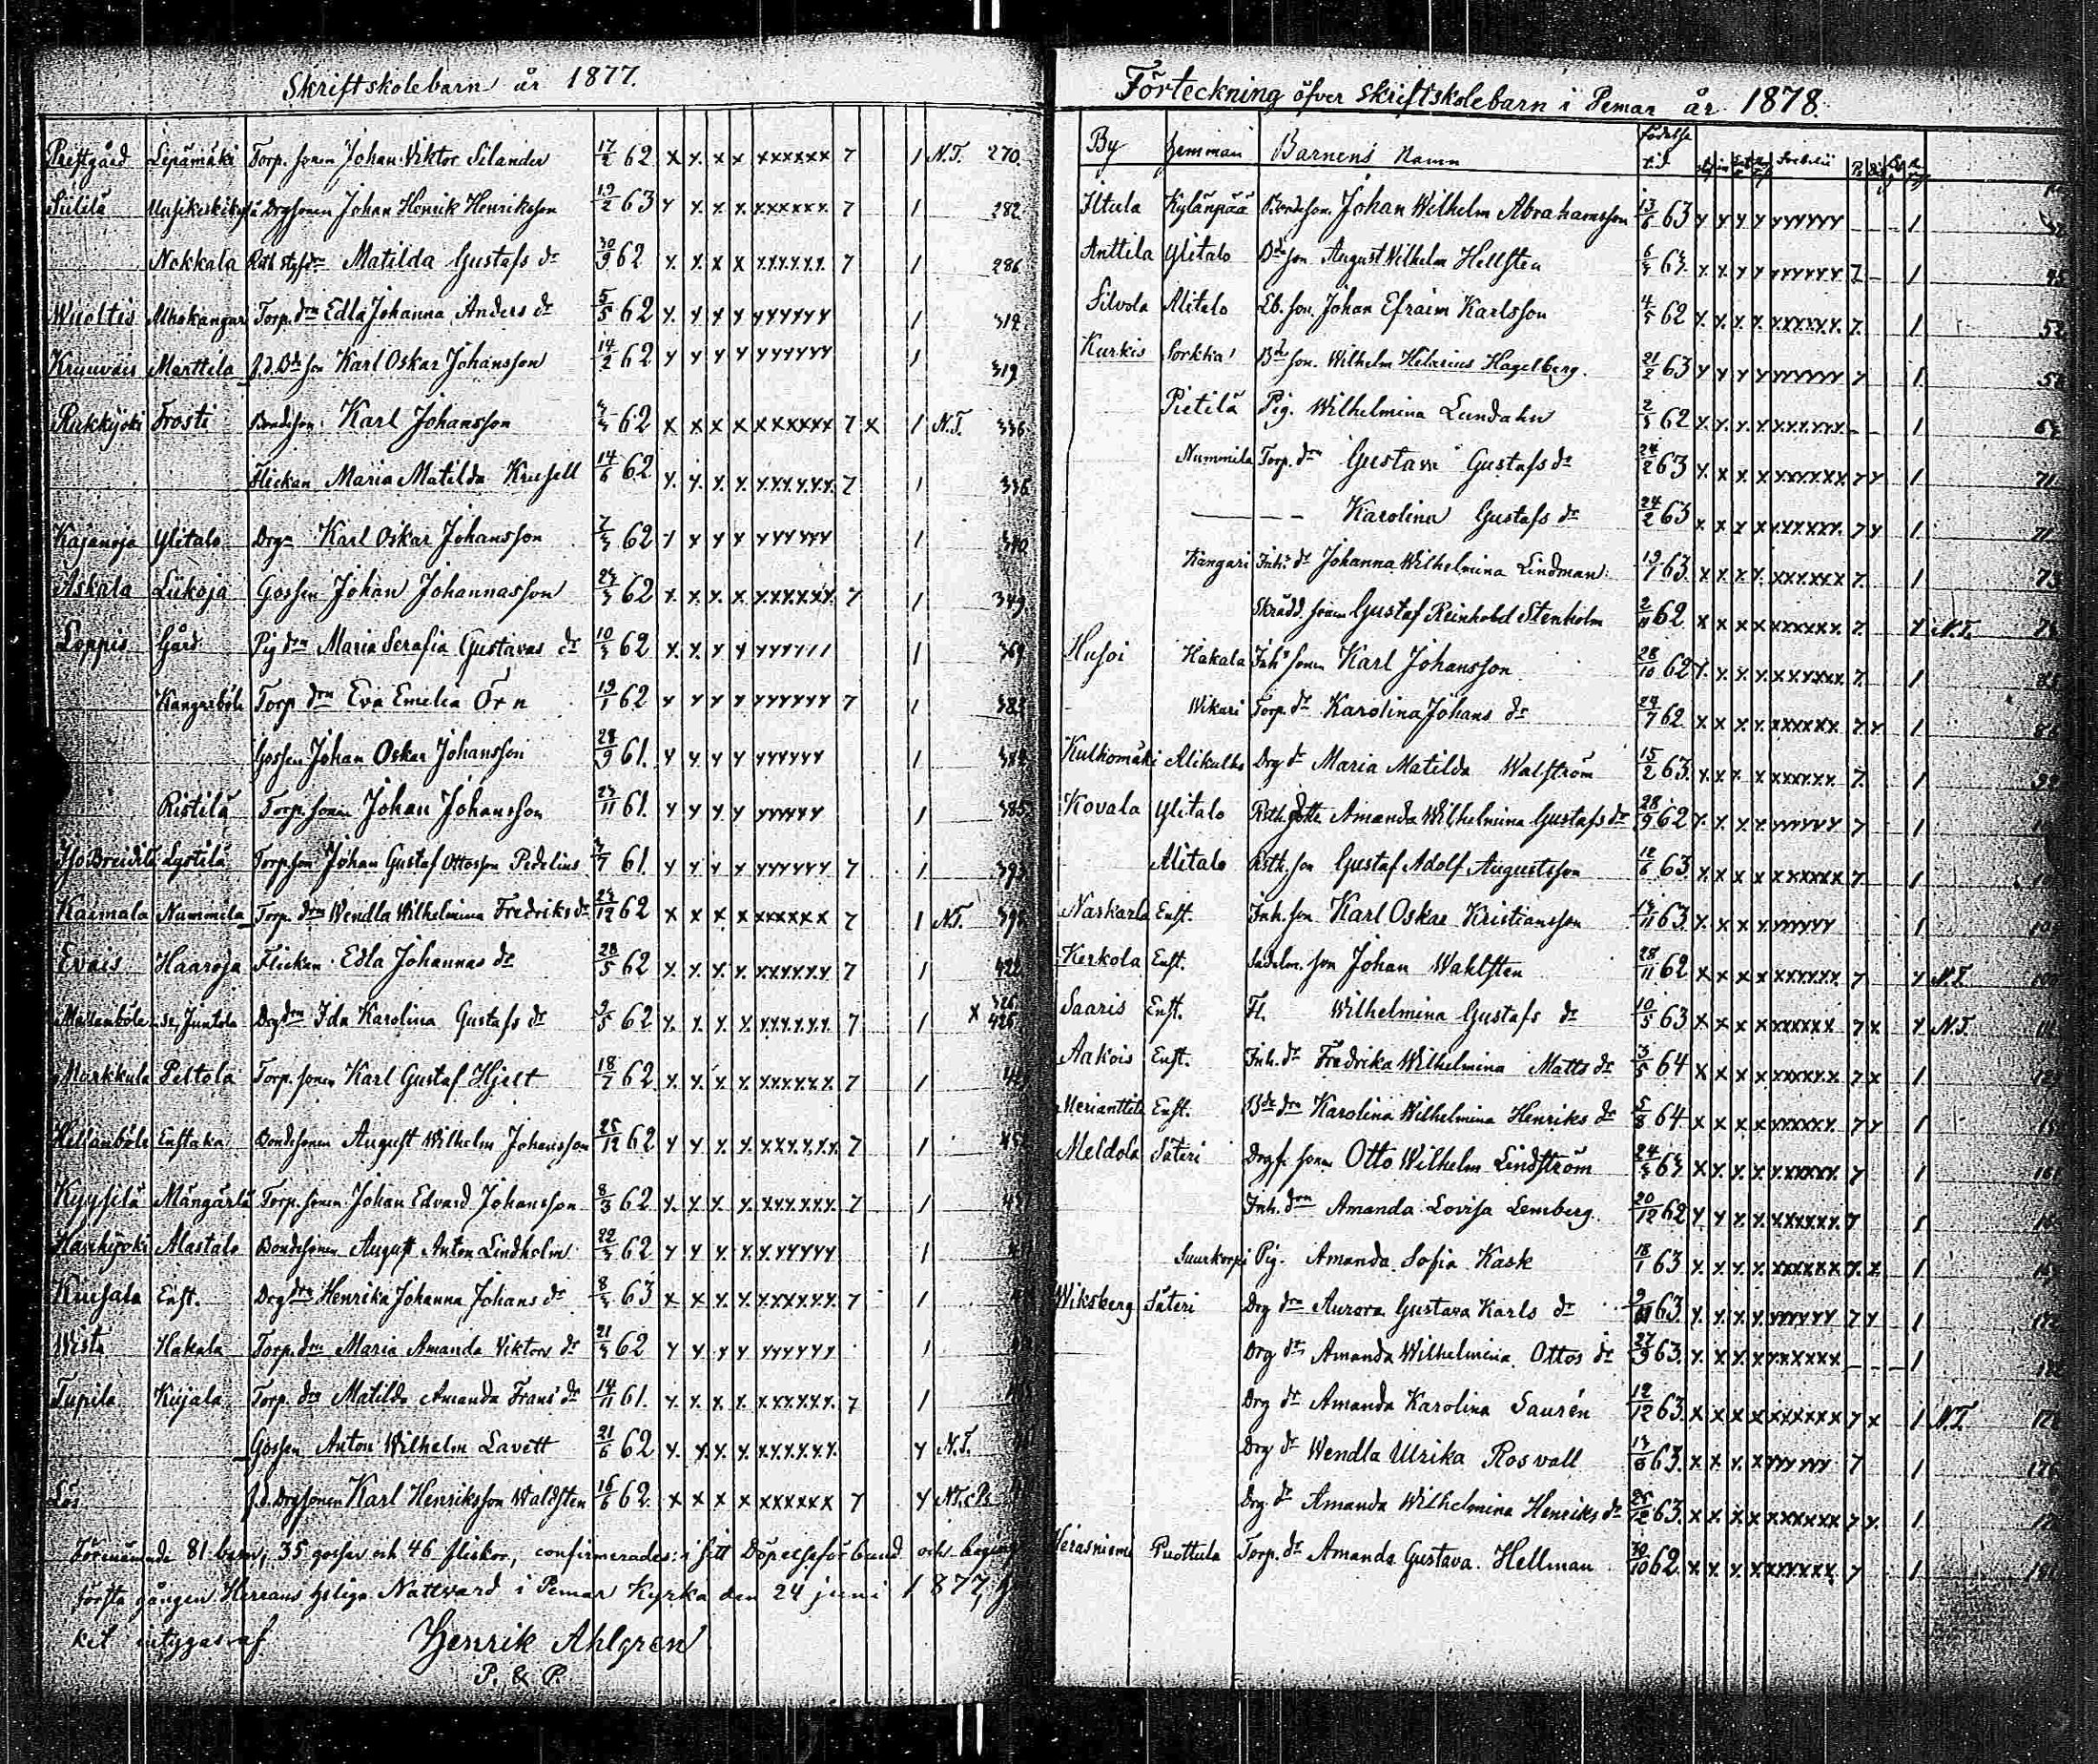 Skriftskolebarn år 1877.
Prestgård Lepämäki Torp. sonen Johan Viktor Silander 17/2 62 x x x x xxxxxx 7 1 N.T. 270.
Siitilä Drgsonen Johan Henrik Henriksson 19/2 63 x x x x xxxxxx 7 1 282.
Nokkala Matilda Gustafs dr 30/9 62 x x x x xxxxxx 7 1 286
Wuoltis Alhokangar Torp. drn Edla Johanna Anders dr 5/5 62 x x x x xxxxxx 1 312
Kruuvais Marttila f.d. Bd son Karl Oskar Johansson 14/2 62 x x x x xxxxxx 1 319
Rukkijoki Frosti Bondeson Karl Johansson 62 x x x x xxxxxx 7 x 1 N.T. 336
Flickan Maria Matilda Krusell 14/6 62 x x x x xxxxxx 7 1 336
Kajanoja Ylitalo Drgn Karl Oskar Johansson 62 x x x x xxxxxx 1 340
Askala Liikoja Gossen Johan Johannasson 62 x x x x xxxxxx 7 1 349
Loppis Gård Pig drn Maria Serafia Gustavas dr 62 x x x x xxxxxx 1 369
Kangarböle Torp drn Eva Emelia Örn 19/1 62 x x x x xxxxxx 7 1 382
Gossen Johan Oskar Johansson 28/9 61. x x x x xxxxxx 1
Ristilä Torp. sonen Johan Johansson 23/11 61. x x x x xxxxxx 1 385
Lystilä Torp. son Johan Gustaf Ottosson Pedelius 61. x x x x xxxxxx 7 1
Kaimala Nummila Torp. drn Wendla Wilhelmina Fredriks dr 62 x x x x xxxxxx 7 1 N.T.
Evais Haaroja Flickan Edla Johannas dr 28/5 62 x x x x xxxxxx 7 1 422
Juntola Drg drn Ida Karolina Gustafs dr 62 x x x x xxxxxx 7 1 x 426
Markkula Peltola Torp. sonen Karl Gustaf Hjelt 18/7 62. x x x x xxxxxx 7 1
Enstaka Bondesonen August Wilhelm Johansson 25/12 62 x x x x xxxxxx 7 1
Kyysilä Mångärlä Torp. sonen Johan Edvard Johansson 8/3 62 x x x x xxxxxx 7 1
Alastalo Bondesonen August Anton Lindholm 62 x x x x xxxxxx 1
Enst. Drg drn Henrika Johanna Johans dr 63 x x x x xxxxxx 7 1
Wista Hakala Torp. drn Maria Amanda Viktors dr 62 x x x x xxxxxx 1
Tupila Kujala Torp. drn Matilda Amanda Frans dr 14/11 61. x x x x xxxxxx 7 1
Gossen Anton Wilhelm Lavett 21/6 62 x x x x xxxxxx y N.T.
Lös f.d. Drgsonen Karl Henriksson Waldsten 16/6 62. x x x x xxxxxx 7 y
Förenämnde 81 barn, 35 gossar och 46 flickor, confirmerades i sitt Döpelseförbund och
första gången Herrans heliga Nattvard i Pemar Kyrka den 24 juni 1877,
ket intygas af
Henrik Ahlgren
P. & P.
Förteckning öfver skriftskolebarn i Pemar år 1878.
By Hemman Barnens Namn födelse tid
Iltula Kylänpää Bondeson. Johan Wilhelm Abrahamsson 13/6 63 x x x x xxxxxx 1
Anttila Ylitalo Bde son August Vilhelm Hellsten 63 x x x x xxxxxx 7 1
Silvola Alitalo Lb. son. Johan Efraim Karlsson 62 x x x x xxxxxx 7 1
Kurkis Bde son. Wilhelm Helarius Hagelberg. 21/2 63 x x x x xxxxxx 7 1
Pietilä Pig. Wilhelmina Lundahn 62 x x x x xxxxxx 1
Nummila Torp. drn Gustava Gustafs dr 24/2 63 x x x x xxxxxx 7 x 1 71
Karolina Gustafs dr 24/2 63 x x x x xxxxxx 7 x 1 71
Kangari Inh. dr Johanna Wilhelmina Lindman 19/1 63 x x x x xxxxxx 7 1 73
Skrädd. sonen Gustaf Reinhold Stenholm 2/11 62 x x x x xxxxxx 7 y N.T.
Husoi Hakala Inh. sonen Karl Johansson 28/10 62 x x x x xxxxxx 7 1
Wikari Torp. dr Karolina Johans dr 24/7 62 x x x x xxxxxx 7 x 1
Kulkomäki Alikulho Drg dr Maria Matilda Walström 15/2 63 x x x x xxxxxx 7 1
Kovala Ylitalo Rsth. dotter Amanda Wilhelmina Gustafs dr 28/9 62 x x x x xxxxxx 7 1
Alitalo Rsth. son Gustaf Adolf Augustsson 12/6 63 x x x x xxxxxx 7 1
Naskarla Enst. Inh. son Karl Oskar Kristiansson 63 x x x x xxxxxx 1
Kerkola Enst. Sadelm. son Johan Wahlsten 28/11 62 x x x x xxxxxx 7 y N.T.
Saaris Enst. Fl. Wilhelmina Gustafs dr 10/5 63 x x x x xxxxxx 7 x y N.T.
Aakois Enst. Inh. dr Fredrika Wilhelmina Matts dr 3/5 64 x x x x xxxxxx 7 x 1
Merianttila Enst. Bde drn Karolina Wilhelmina Henriks dr 5/8 64 x x x x xxxxxx 7 x 1
Meldola Säteri Drg. sonen Otto Wilhelm Lindström 63 x x x x xxxxxx 7 1
Inh. drn Amanda Lovisa Lemberg. 20/12 62 x x x x xxxxxx 7 1
Suurkorpi Pig. Amanda Sofia Kask 18/1 63 x x x x xxxxxx 7 x 1
Wiksberg Säteri Drg drn Aurora Gustava Karls dr 63 x x x x xxxxxx 7 x 1
Drg dr Amanda Wilhelmina Ottos dr 27/9 63 x x x x xxxxxx 1
Drg dr Amanda Karolina Saurén 12/12 63. x x x x xxxxxx 7 x 1 N.T.
Drg dr Wendla Ulrika Rosvall 63 x x x x xxxxxx 7 1
Drg. dr Amanda Wilhelmina Henriks dr 25/12 63 x x x x xxxxxx 7 x 1
Puottula Torp. dr Amanda Gustava Hellman 30/10 62 x x x x xxxxxx 7 1